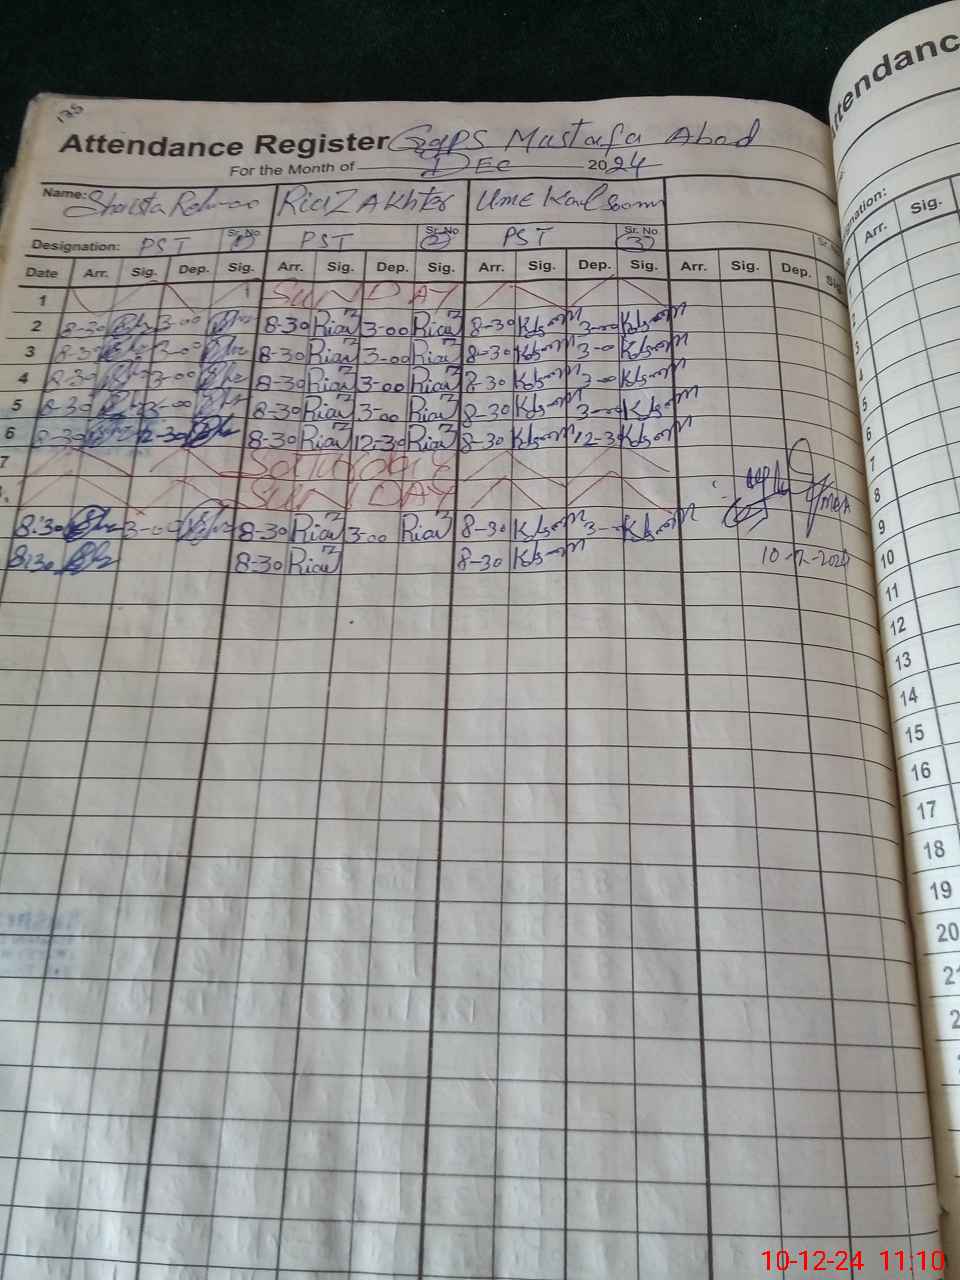 135
Attendance Register GGPS Mustafa Abad
For the Month of DEC 2024
Name: Shaista Rehman Riaz Akhter Ume Kalsoom
Designation: PST Sr. No 1 PST Sr. No 2 PST Sr. No 3
Date Arr. Sig. Dep. Sig. Arr. Sig. Dep. Sig. Arr. Sig. Dep. Sig. Arr. Sig. Dep. Sig.
1 SUNDAY
2 8-30 3-00 8-30 Riaz 3-00 Riaz 8-30 3-00
3 8-30 3-00 8-30 Riaz 3-00 Riaz 8-30 3-00
4 8-30 3-00 8-30 Riaz 3-00 Riaz 8-30 3-00
5 8-30 3-00 8-30 Riaz 3-00 Riaz 8-30 3-00
6 8-30 12-30 8-30 Riaz 12-30 Riaz 8-30 12-30
7 Saturday
SUNDAY
8:30 3-00 8-30 Riaz 3-00 Riaz 8-30 3-00
8:30 8-30 Riaz 8-30
Attendanc
Arr. Sig.
6
7
8
9
10
11
12
13
14
15
16
17
18
19
20
10-12-24 11:10